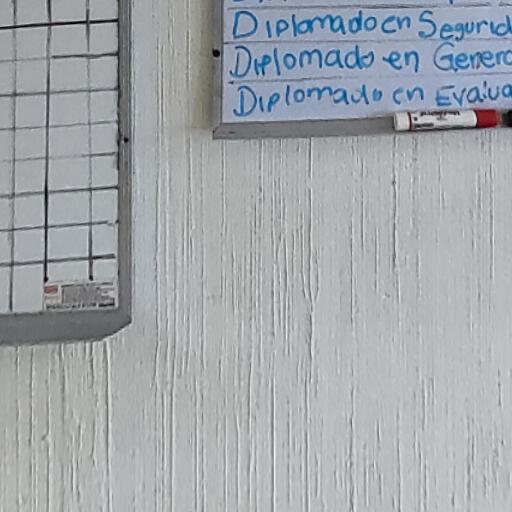 Diplomado en Segurid
Diplomado en Genero
Diplomado en Evalua